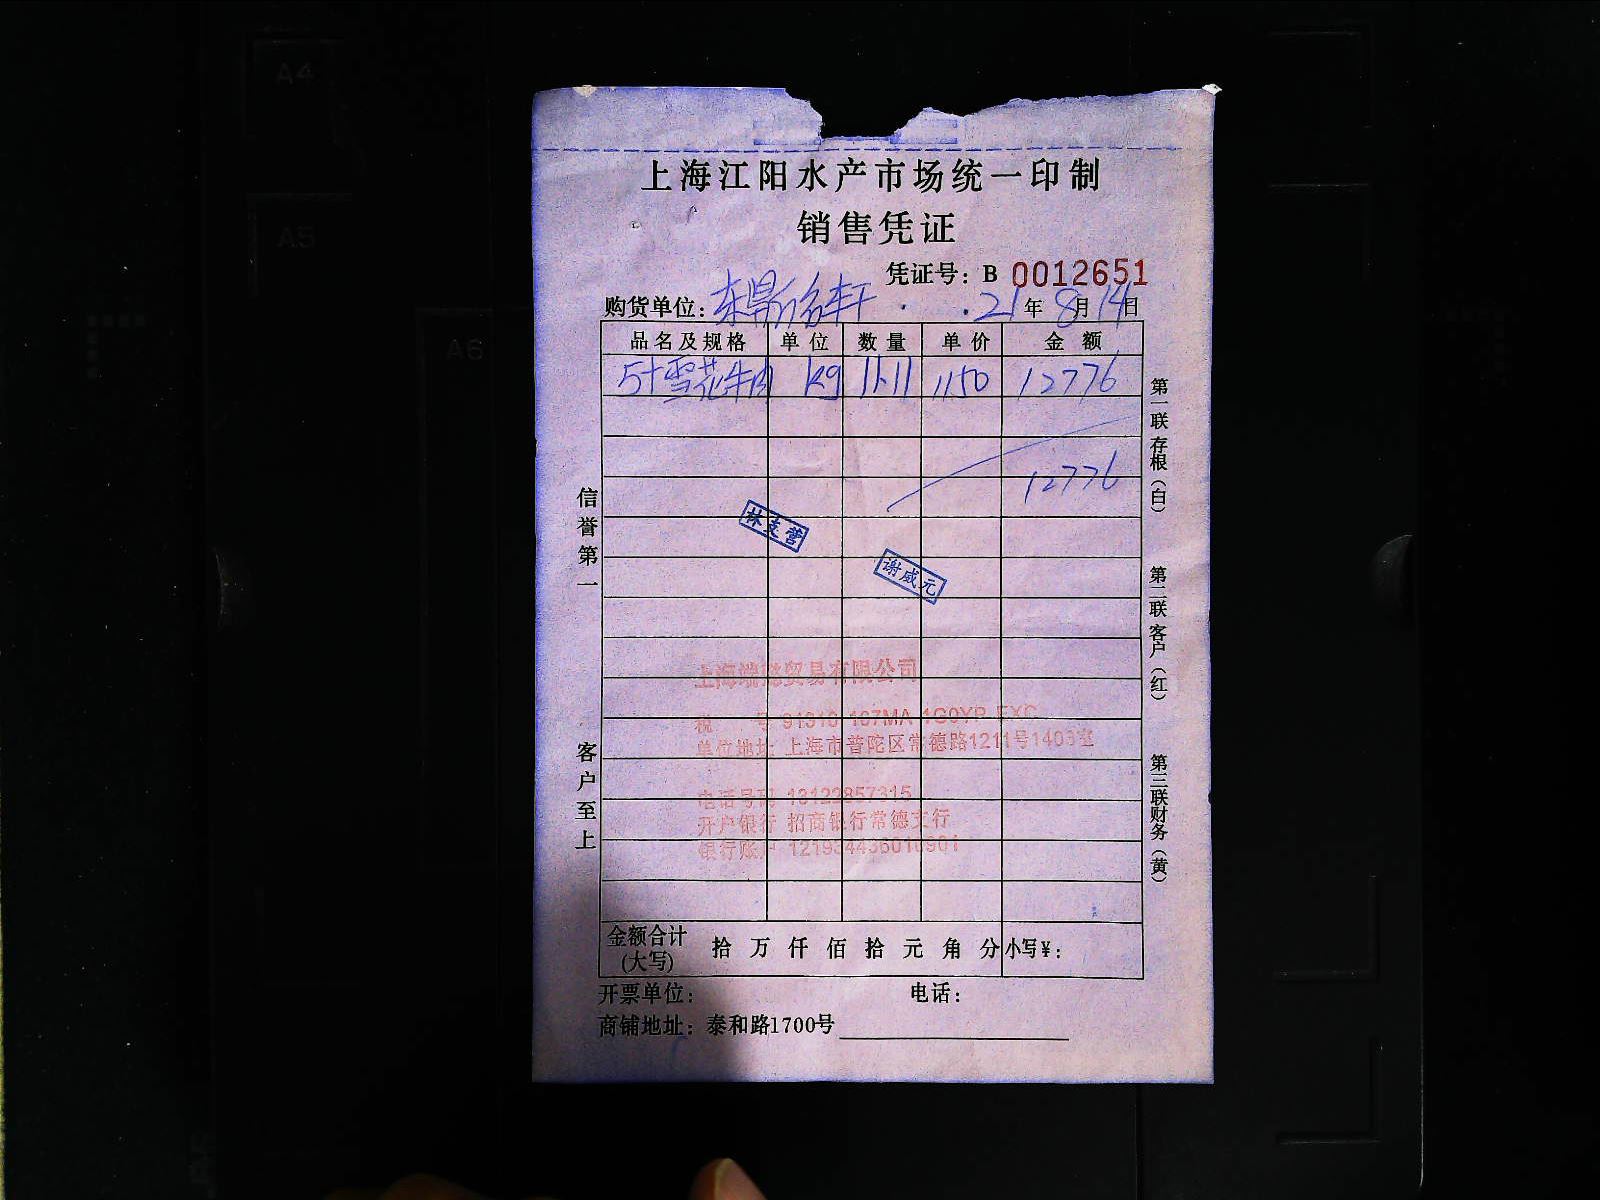 A4
A5
A6
上海江阳水产市场统一印制
销售凭证
凭证号：B 0012651
购货单位： 21年8月14日
品名及规格 单位 数量 单价 金额
5+雪花牛肉 kg 11.11 1150 12776
12776
林支营
谢威元
上海 贸易有限公司
税 号
单位地址 上海市普陀区常德路1211号1403室
电话号码 13122857315
开户银行 招商银行常德支行
银行账户
金额合计(大写) 拾 万 仟 佰 拾 元 角 分 小写¥：
开票单位： 电话：
商铺地址：泰和路1700号
信誉第一 客户至上
第一联 存根（白） 第二联 客户（红） 第三联财务（黄）